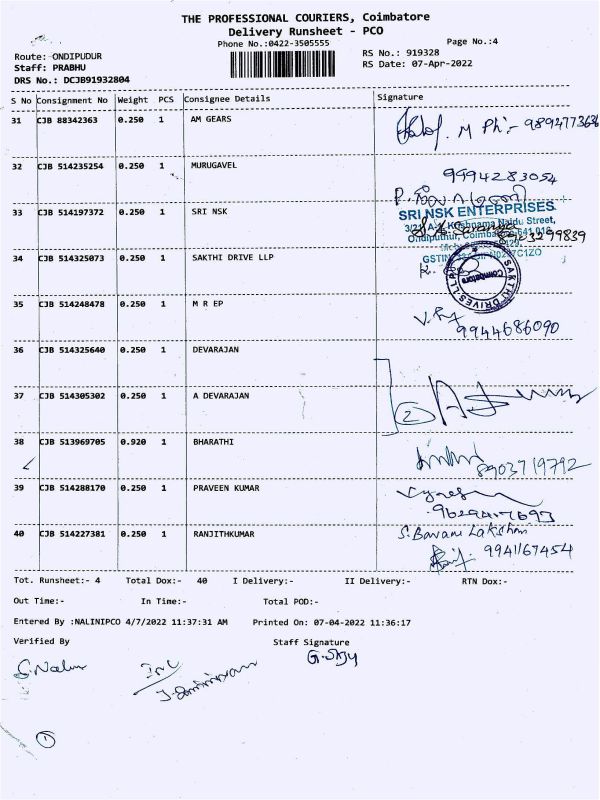 THE PROFESSIONAL COURIERS, Coimbatore
Delivery Runsheet - PCO
Phone No.:0422-3505555
Page No.:4
Route: ONDIPUDUR
Staff: PRABHU
DRS No.: DCJB91932804
RS No.: 919328
RS Date: 07-Apr-2022
S No Consignment No Weight PCS Consignee Details Signature
31 CJB 88342363 0.250 1 AM GEARS M Ph:- 9894773636
32 CJB 514235254 0.250 1 MURUGAVEL 9994283054
33 CJB 514197372 0.250 1 SRI NSK
SRI NSK ENTERPRISES
Krishnama Naidu Street,
Ondiputhur, Coimbatore-641 016
34 CJB 514325073 0.250 1 SAKTHI DRIVE LLP
SAKTHI DRIVES LLP
Coimbatore
35 CJB 514248478 0.250 1 M R EP 9944686090
36 CJB 514325640 0.250 1 DEVARAJAN
37 CJB 514305302 0.250 1 A DEVARAJAN 2
38 CJB 513969705 0.920 1 BHARATHI 8903719792
39 CJB 514288170 0.250 1 PRAVEEN KUMAR
40 CJB 514227381 0.250 1 RANJITHKUMAR 9941167454
Tot. Runsheet:- 4 Total Dox:- 40 I Delivery:- II Delivery:- RTN Dox:-
Out Time:- In Time:- Total POD:-
Entered By :NALINIPCO 4/7/2022 11:37:31 AM Printed On: 07-04-2022 11:36:17
Verified By Staff Signature
1